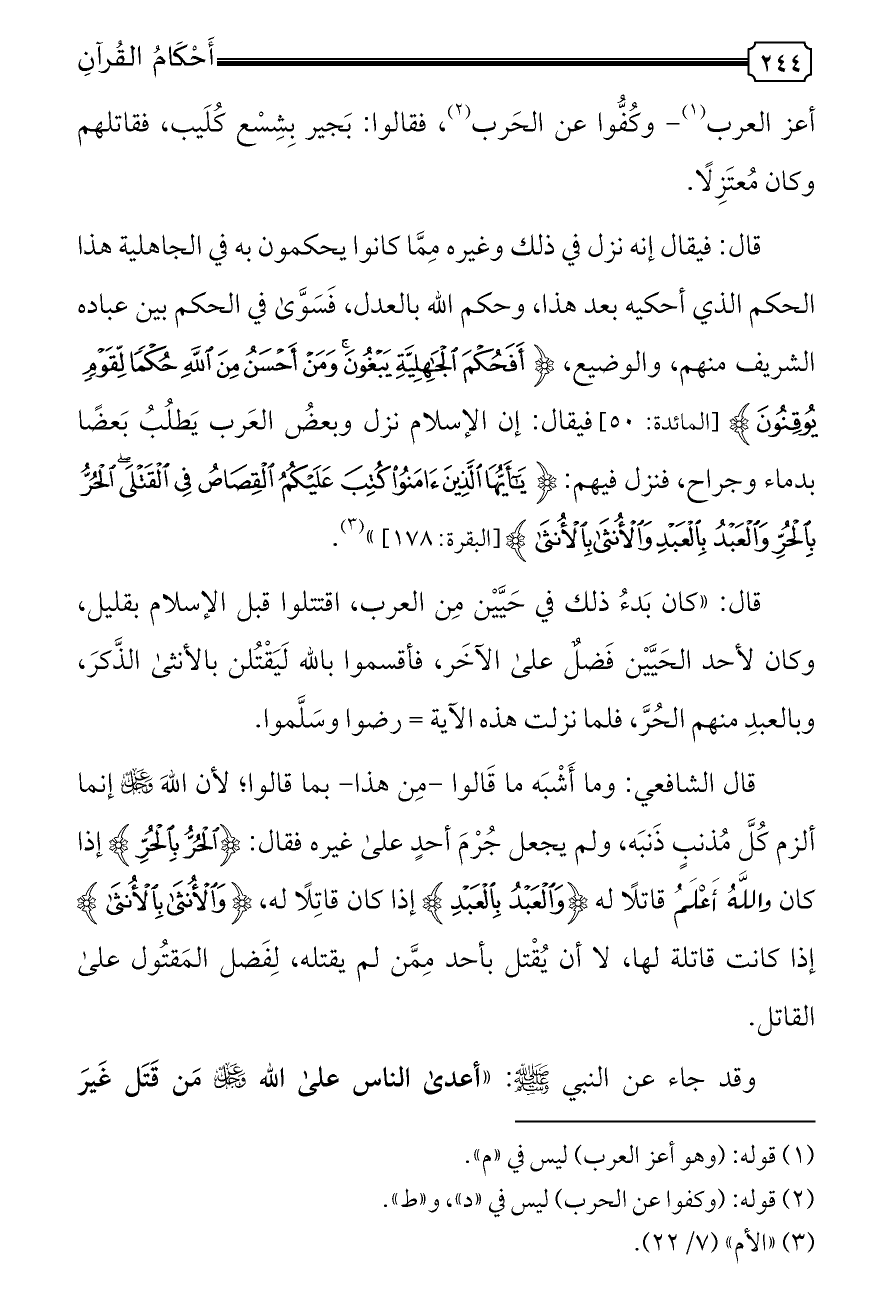 ٢٤٤ أَحْكَامُ القُرآنِ
أعز العرب(١)- وكُفُّوا عن الحَرب(٢)، فقالوا: بَجير بِشِسْع كُلَيب، فقاتلهم
وكان مُعتَزِلًا.
قال: فيقال إنه نزل في ذلك وغيره مِمَّا كانوا يحكمون به في الجاهلية هذا
الحكم الذي أحكيه بعد هذا، وحكم الله بالعدل، فَسَوَّىٰ في الحكم بين عباده
الشريف منهم، والوضيع، ﴿أَفَحُكْمَ ٱلْجَٰهِلِيَّةِ يَبْغُونَ ۚ وَمَنْ أَحْسَنُ مِنَ ٱللَّهِ حُكْمًا لِّقَوْمٍ
يُوقِنُونَ﴾ [المائدة: ٥٠] فيقال: إن الإسلام نزل وبعضُ العَرب يَطلُبُ بَعضًا
بدماء وجراح، فنزل فيهم: ﴿يَٰٓأَيُّهَا ٱلَّذِينَ ءَامَنُوا۟ كُتِبَ عَلَيْكُمُ ٱلْقِصَاصُ فِى ٱلْقَتْلَى ۖ ٱلْحُرُّ
بِٱلْحُرِّ وَٱلْعَبْدُ بِٱلْعَبْدِ وَٱلْأُنثَىٰ بِٱلْأُنثَىٰ﴾ [البقرة: ١٧٨]»(٣).
قال: «كان بَدءُ ذلك في حَيَّيْن مِن العرب، اقتتلوا قبل الإسلام بقليل،
وكان لأحد الحَيَّيْن فَضلٌ علىٰ الآخَر، فأقسموا بالله لَيَقْتُلن بالأنثىٰ الذَّكرَ،
وبالعبدِ منهم الحُرَّ، فلما نزلت هذه الآية = رضوا وسَلَّموا.
قال الشافعي: وما أَشْبَه ما قَالوا -مِن هذا- بما قالوا؛ لأن اللهَ ﷿ إنما
ألزم كُلَّ مُذنبٍ ذَنبَه، ولم يجعل جُرْمَ أحدٍ علىٰ غيره فقال: ﴿ٱلْحُرُّ بِٱلْحُرِّ﴾ إذا
كان واللَّهُ أَعْلَمُ قاتلًا له ﴿وَٱلْعَبْدُ بِٱلْعَبْدِ﴾ إذا كان قاتِلًا له، ﴿وَٱلْأُنثَىٰ بِٱلْأُنثَىٰ﴾
إذا كانت قاتلة لها، لا أن يُقْتل بأحد مِمَّن لم يقتله، لِفَضل المَقتُول علىٰ
القاتل.
وقد جاء عن النبي ﷺ: «أعدىٰ الناس علىٰ الله ﷿ مَن قَتَل غَيرَ
(١) قوله: (وهو أعز العرب) ليس في «م».
(٢) قوله: (وكفوا عن الحرب) ليس في «د»، و«ط».
(٣) «الأم» (٧/ ٢٢).